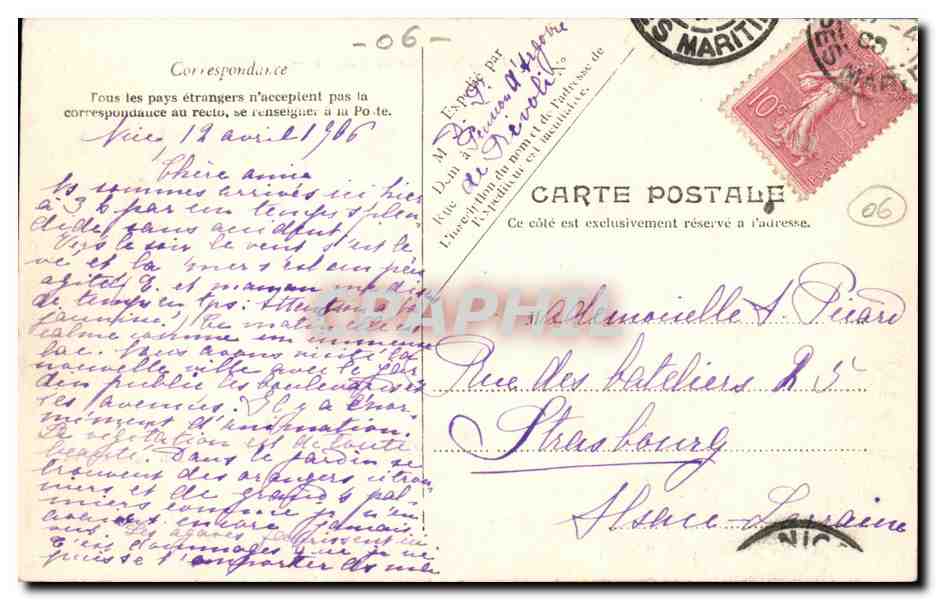 -06-
Correspondance
Tous les pays étrangers n'acceptent pas la
correspondance au recto, se renseigner à la Poste.
Nice, 12 avril 1906
Chère amie
Ns sommes arrivés ici hier
à 3 h par un temps splen
dide, sans accident.
Vers le soir le vent s'est le
vé et la mer s'est un peu
agitée! E. et maman me dis
de temps en tps: attention
Ce matin elle est
calme comme un immense
lac. Nous avons visité la
nouvelle ville avec le Jar
din public les boulevards et
les avenues. Il y a énor
mément d'animation.
La végétation est de toute
beauté. Dans le jardin se
trouvent des orangers citron
niers et de grands pal
miers comme je n'en
encore jamais
vus. Les agaves fleurissent ici
C'est dommage que je ne
puisse t'emporter
Expédié par
M
Dem à
Rue de Rivoli No
L'inscription du nom et de l'adresse de
l'Expéditeur est facultative.
CARTE POSTALE
Ce côté est exclusivement réservé à l'adresse.
Mademoiselle A. Picard
Rue des bateliers 25
Strasbourg
Alsace-Lorraine
ES MARITI
10c
06
NICE
CPAPHIL